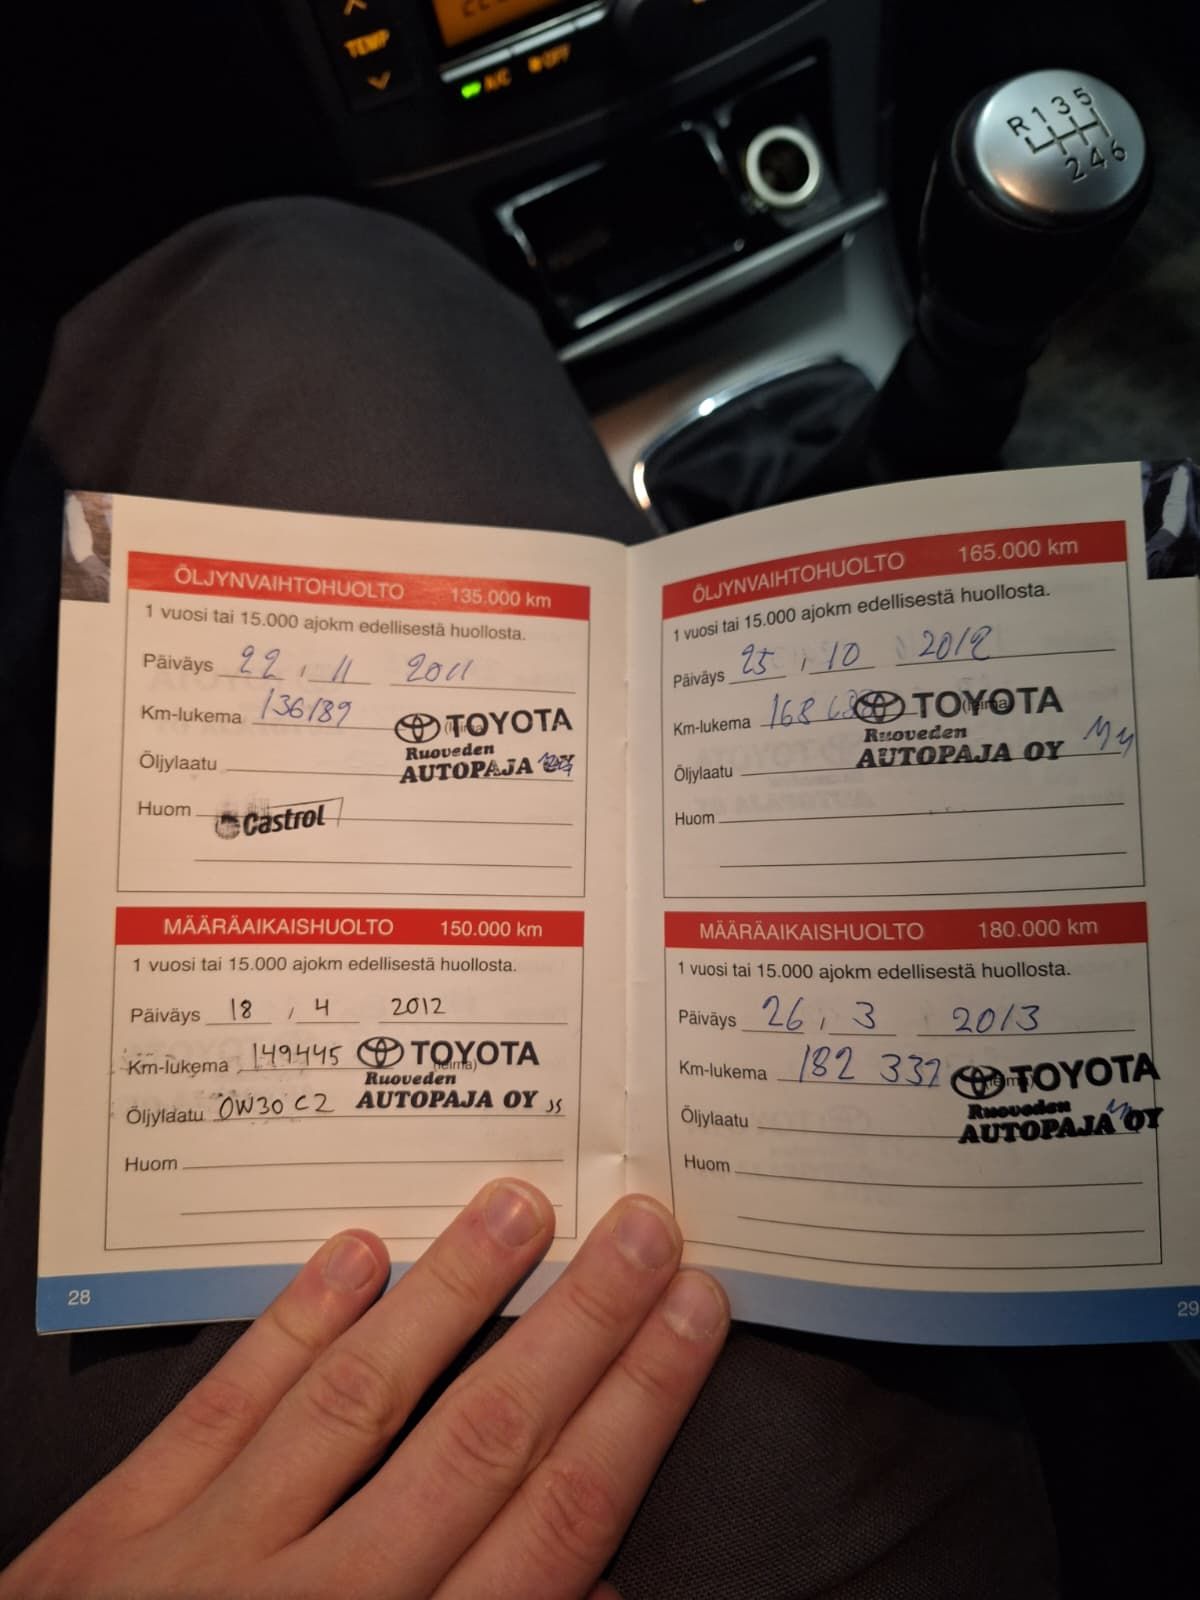 TEMP
A/C
OFF
R 1 3 5
2 4 6
ÖLJYNVAIHTOHUOLTO 135.000 km
1 vuosi tai 15.000 ajokm edellisestä huollosta.
Päiväys 22 , 11 2011
Km-lukema 136189
TOYOTA
Ruoveden
Öljylaatu
AUTOPAJA OY
Huom Castrol
MÄÄRÄAIKAISHUOLTO 150.000 km
1 vuosi tai 15.000 ajokm edellisestä huollosta.
Päiväys 18 , 4 2012
Km-lukema 149445 TOYOTA
(leima)
Ruoveden
Öljylaatu 0W30 C2 AUTOPAJA OY JS
Huom
28
ÖLJYNVAIHTOHUOLTO 165.000 km
1 vuosi tai 15.000 ajokm edellisestä huollosta.
Päiväys 25 , 10 2012
Km-lukema TOYOTA
(leima)
Ruoveden
Öljylaatu AUTOPAJA OY
Huom
MÄÄRÄAIKAISHUOLTO 180.000 km
1 vuosi tai 15.000 ajokm edellisestä huollosta.
Päiväys 26 , 3 2013
Km-lukema 182 337 TOYOTA
Ruoveden
Öljylaatu AUTOPAJA OY
Huom
29